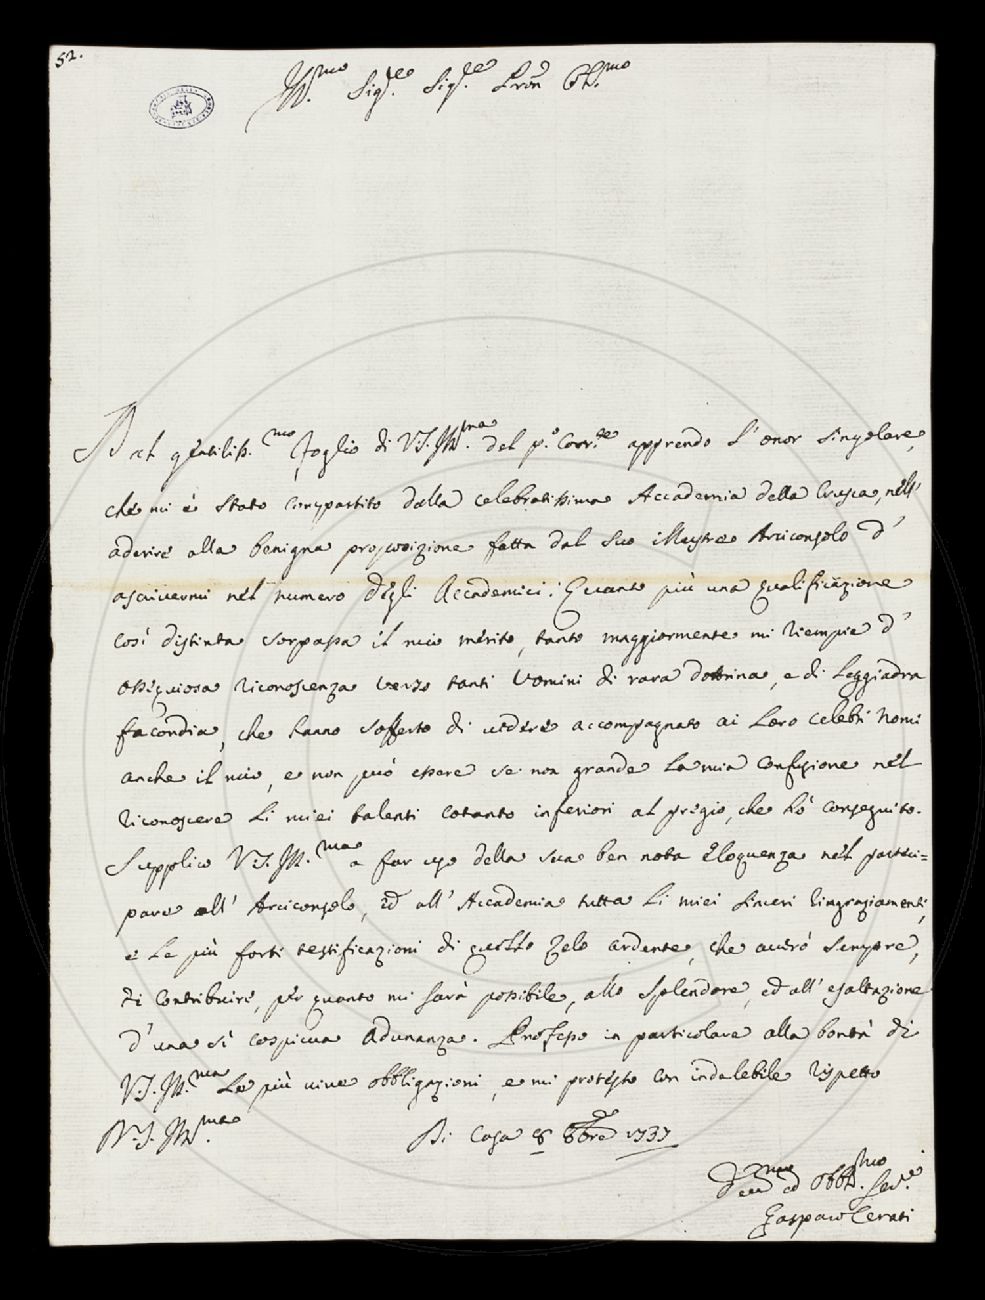 52.
Ill.mo Sig.re Sig.re Pron Col.mo
Dal gentiliss.mo foglio di V.S. Ill.ma del p.o Corr.te apprendo l'onor singolare,
che mi è stato compartito dalla celebratissima Accademia della Crusca, nell'
aderire alla benigna proposizione fatta dal suo Illustre Arciconsolo d'
ascrivermi nel numero degli Accademici: Quanto più una qualificazione
così distinta sorpassa il mio merito, tanto maggiormente mi riempie d'
ossequiosa riconoscenza verso tanti Uomini di rara dottrina, e di leggiadra
facondia, che hanno sofferto di vedere accompagnato ai loro celebri Nomi
anche il mio, e non può essere se non grande la mia confusione nel
riconoscere li miei talenti cotanto inferiori al pregio, che hò conseguito.
Supplico V.S. Ill.ma a far uso della sua ben nota eloquenza nel parteci=
pare all' Arciconsolo, ed all' Accademia tutta li miei sinceri ringraziamenti,
e le più forti testificazioni di quello zelo ardente, che averò sempre,
di contribuire, per quanto mi sarà possibile, allo splendore, ed all' esaltazione
d'una sì cospicua Adunanza. Professo in particolare alla bontà di
V.S. Ill.ma le più vive obbligazioni, e mi protesto con indelebile rispetto
D.V.S. Ill.ma Di Casa 8 8bre 1737
Dev.mo ed Obbl.mo Ser.e
Gaspare Cerati